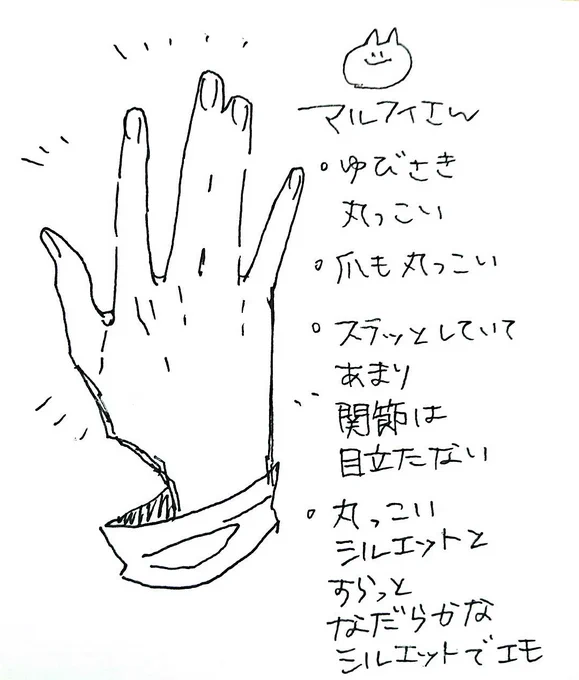 マルフイさん
・ゆびさき
丸っこい
・爪も丸っこい
・スラッとしていて
あまり
関節は
目立たない
・丸っこい
シルエットと
すらっと
なだらかな
シルエットでエモ